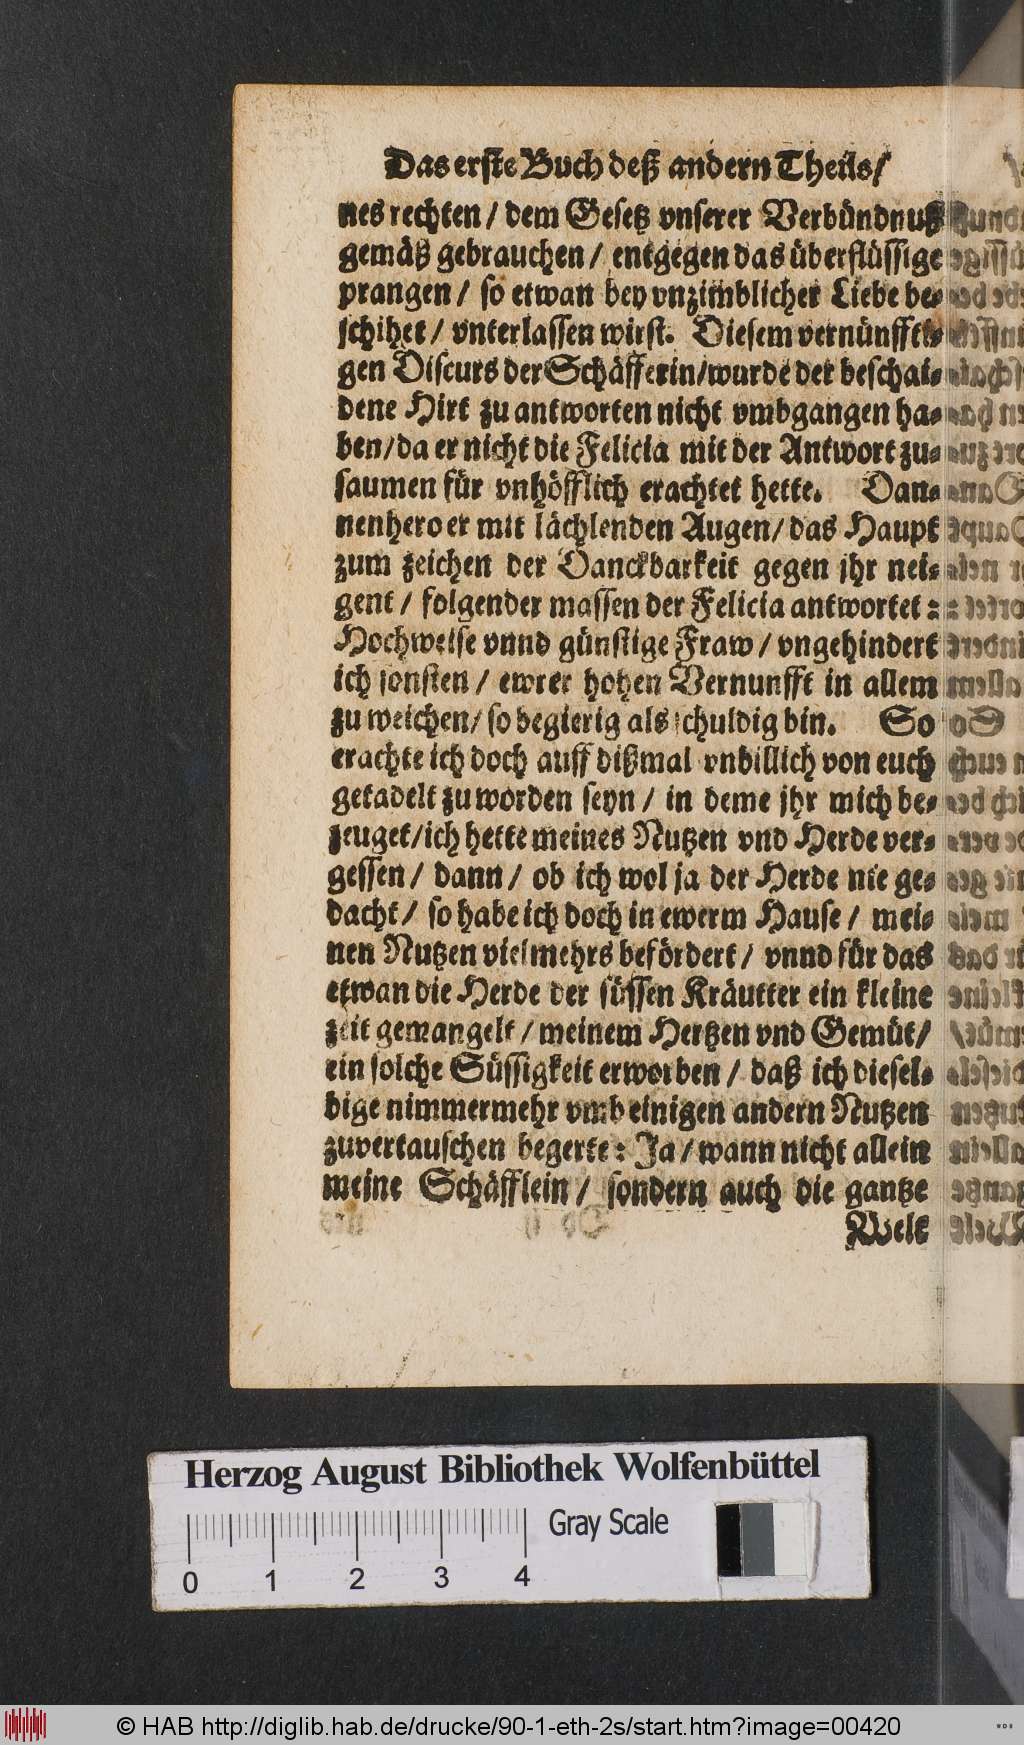 Das erste Buch deß andern Theils/
nes rechten / dem Gesetz vnserer Verbündnuß
gemäß gebrauchen / entgegen das überflüssige
prangen / so etwan bey vnzimblicher Liebe be-
schihet / vnterlassen wirst. Diesem vernünffti-
gen Discurs der Schäfferin/wurde der beschai-
dene Hirt zu antworten nicht vmbgangen ha-
ben/da er nicht die Felicia mit der Antwort zu-
saumen für vnhöfflich erachtet hette. Dan-
nenhero er mit lächlenden Augen/das Haupt
zum zeichen der Danckbarkeit gegen jhr nei-
gent / folgender massen der Felicia antwortet :
Hochweise vnnd günstige Fraw / vngehindert
ich sonsten / ewrer hohen Vernunfft in allem
zu weichen/ so begierig als schuldig bin. So
erachte ich doch auff dißmal vnbillich von euch
getadelt zu worden seyn / in deme jhr mich be-
zeuget/ich hette meines Nutzen vnd Herde ver-
gessen / dann / ob ich wol ja der Herde nie ge-
dacht / so habe ich doch in ewerm Hause / mei-
nen Nutzen viel mehrs befördert / vnnd für das
etwan die Herde der süssen Kräutter ein kleine
zeit gemangelt / meinem Hertzen vnd Gemüt/
ein solche Süssigkeit erworben / daß ich diesel-
bige nimmermehr vmb einigen andern Nutzen
zuvertauschen begerte : Ja / wann nicht allein
meine Schäfflein / sondern auch die gantze
Welt
Herzog August Bibliothek Wolfenbüttel
Gray Scale
0 1 2 3 4
© HAB http://diglib.hab.de/drucke/90-1-eth-2s/start.htm?image=00420